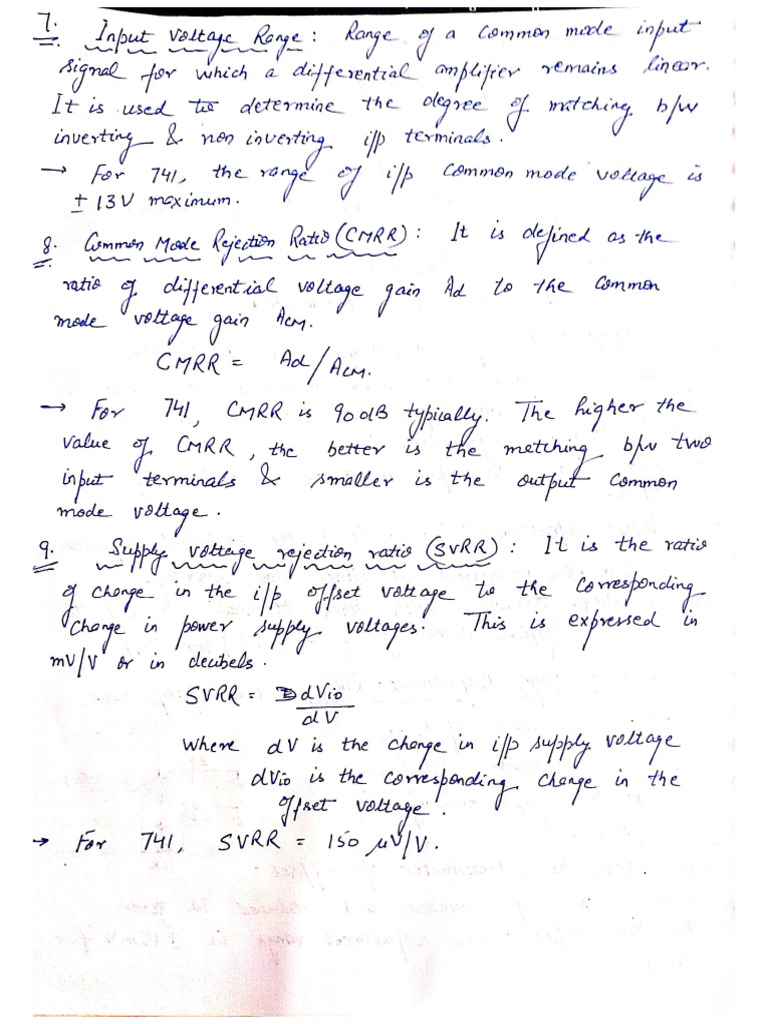 7. Input Voltage Range: Range of a common mode input
signal for which a differential amplifier remains linear.
It is used to determine the degree of matching b/w
inverting & non inverting i/p terminals.
→ For 741, the range of i/p common mode voltage is
± 13V maximum.
8. Common Mode Rejection Ratio (CMRR): It is defined as the
ratio of differential voltage gain Ad to the common
mode voltage gain ACM.
CMRR = Ad/ACM.
→ For 741, CMRR is 90 dB typically. The higher the
value of CMRR, the better is the metching b/w two
input terminals & smaller is the output common
mode voltage.
9. Supply voltage rejection ratio (SVRR): It is the ratio
of change in the i/p offset voltage to the corresponding
change in power supply voltages. This is expressed in
mV/V or in decibels.
SVRR = dVio
dV
Where dV is the change in i/p supply voltage
dVio is the corresponding change in the
offset voltage.
→ For 741, SVRR = 150 µV/V.